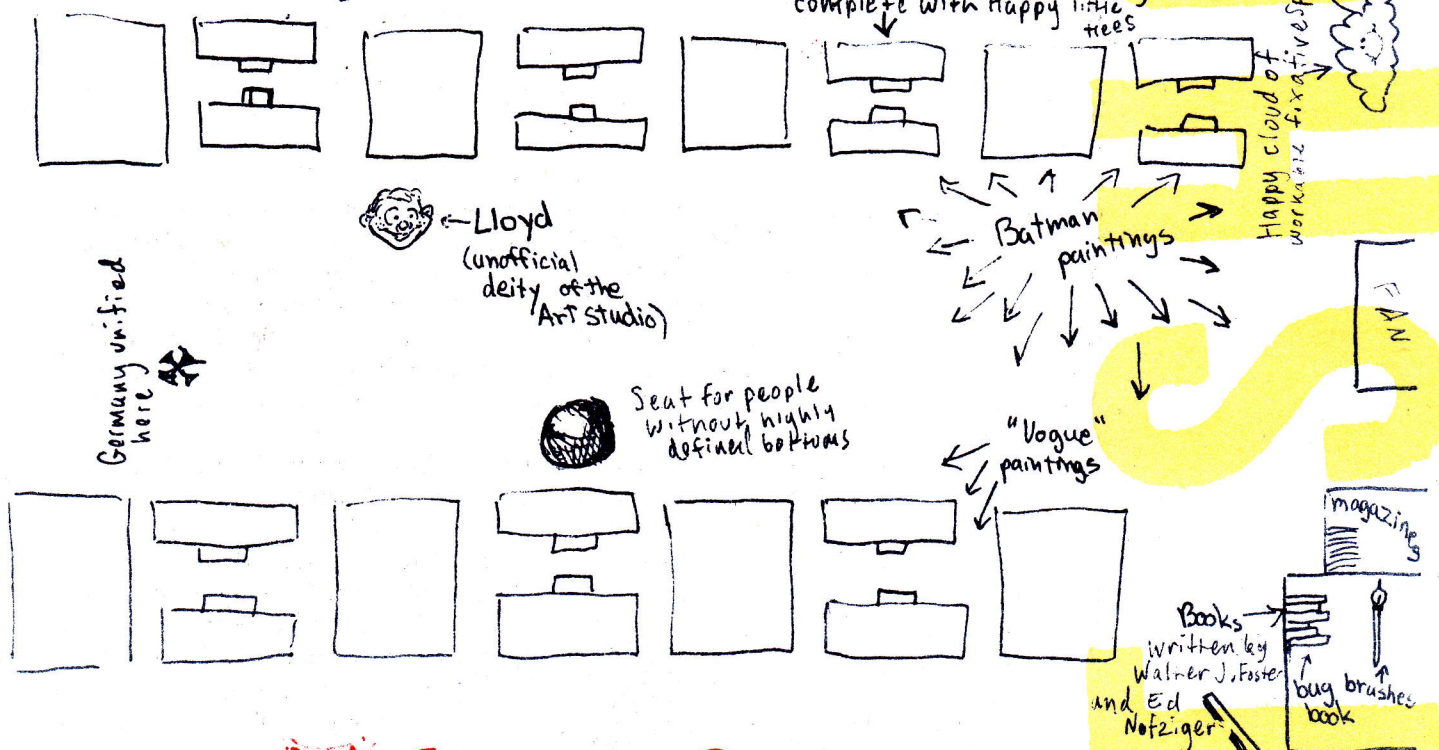 complete with Happy little
trees
Happy cloud of
workable fixative
Lloyd
(unofficial
deity of the
Art Studio)
Batman
paintings
FAN
Germany unified
here
Seat for people
without highly
defined bottoms
"Vogue"
paintings
magazines
Books
written by
Walter J. Foster
and Ed
Nofziger
bug
book
brushes
S